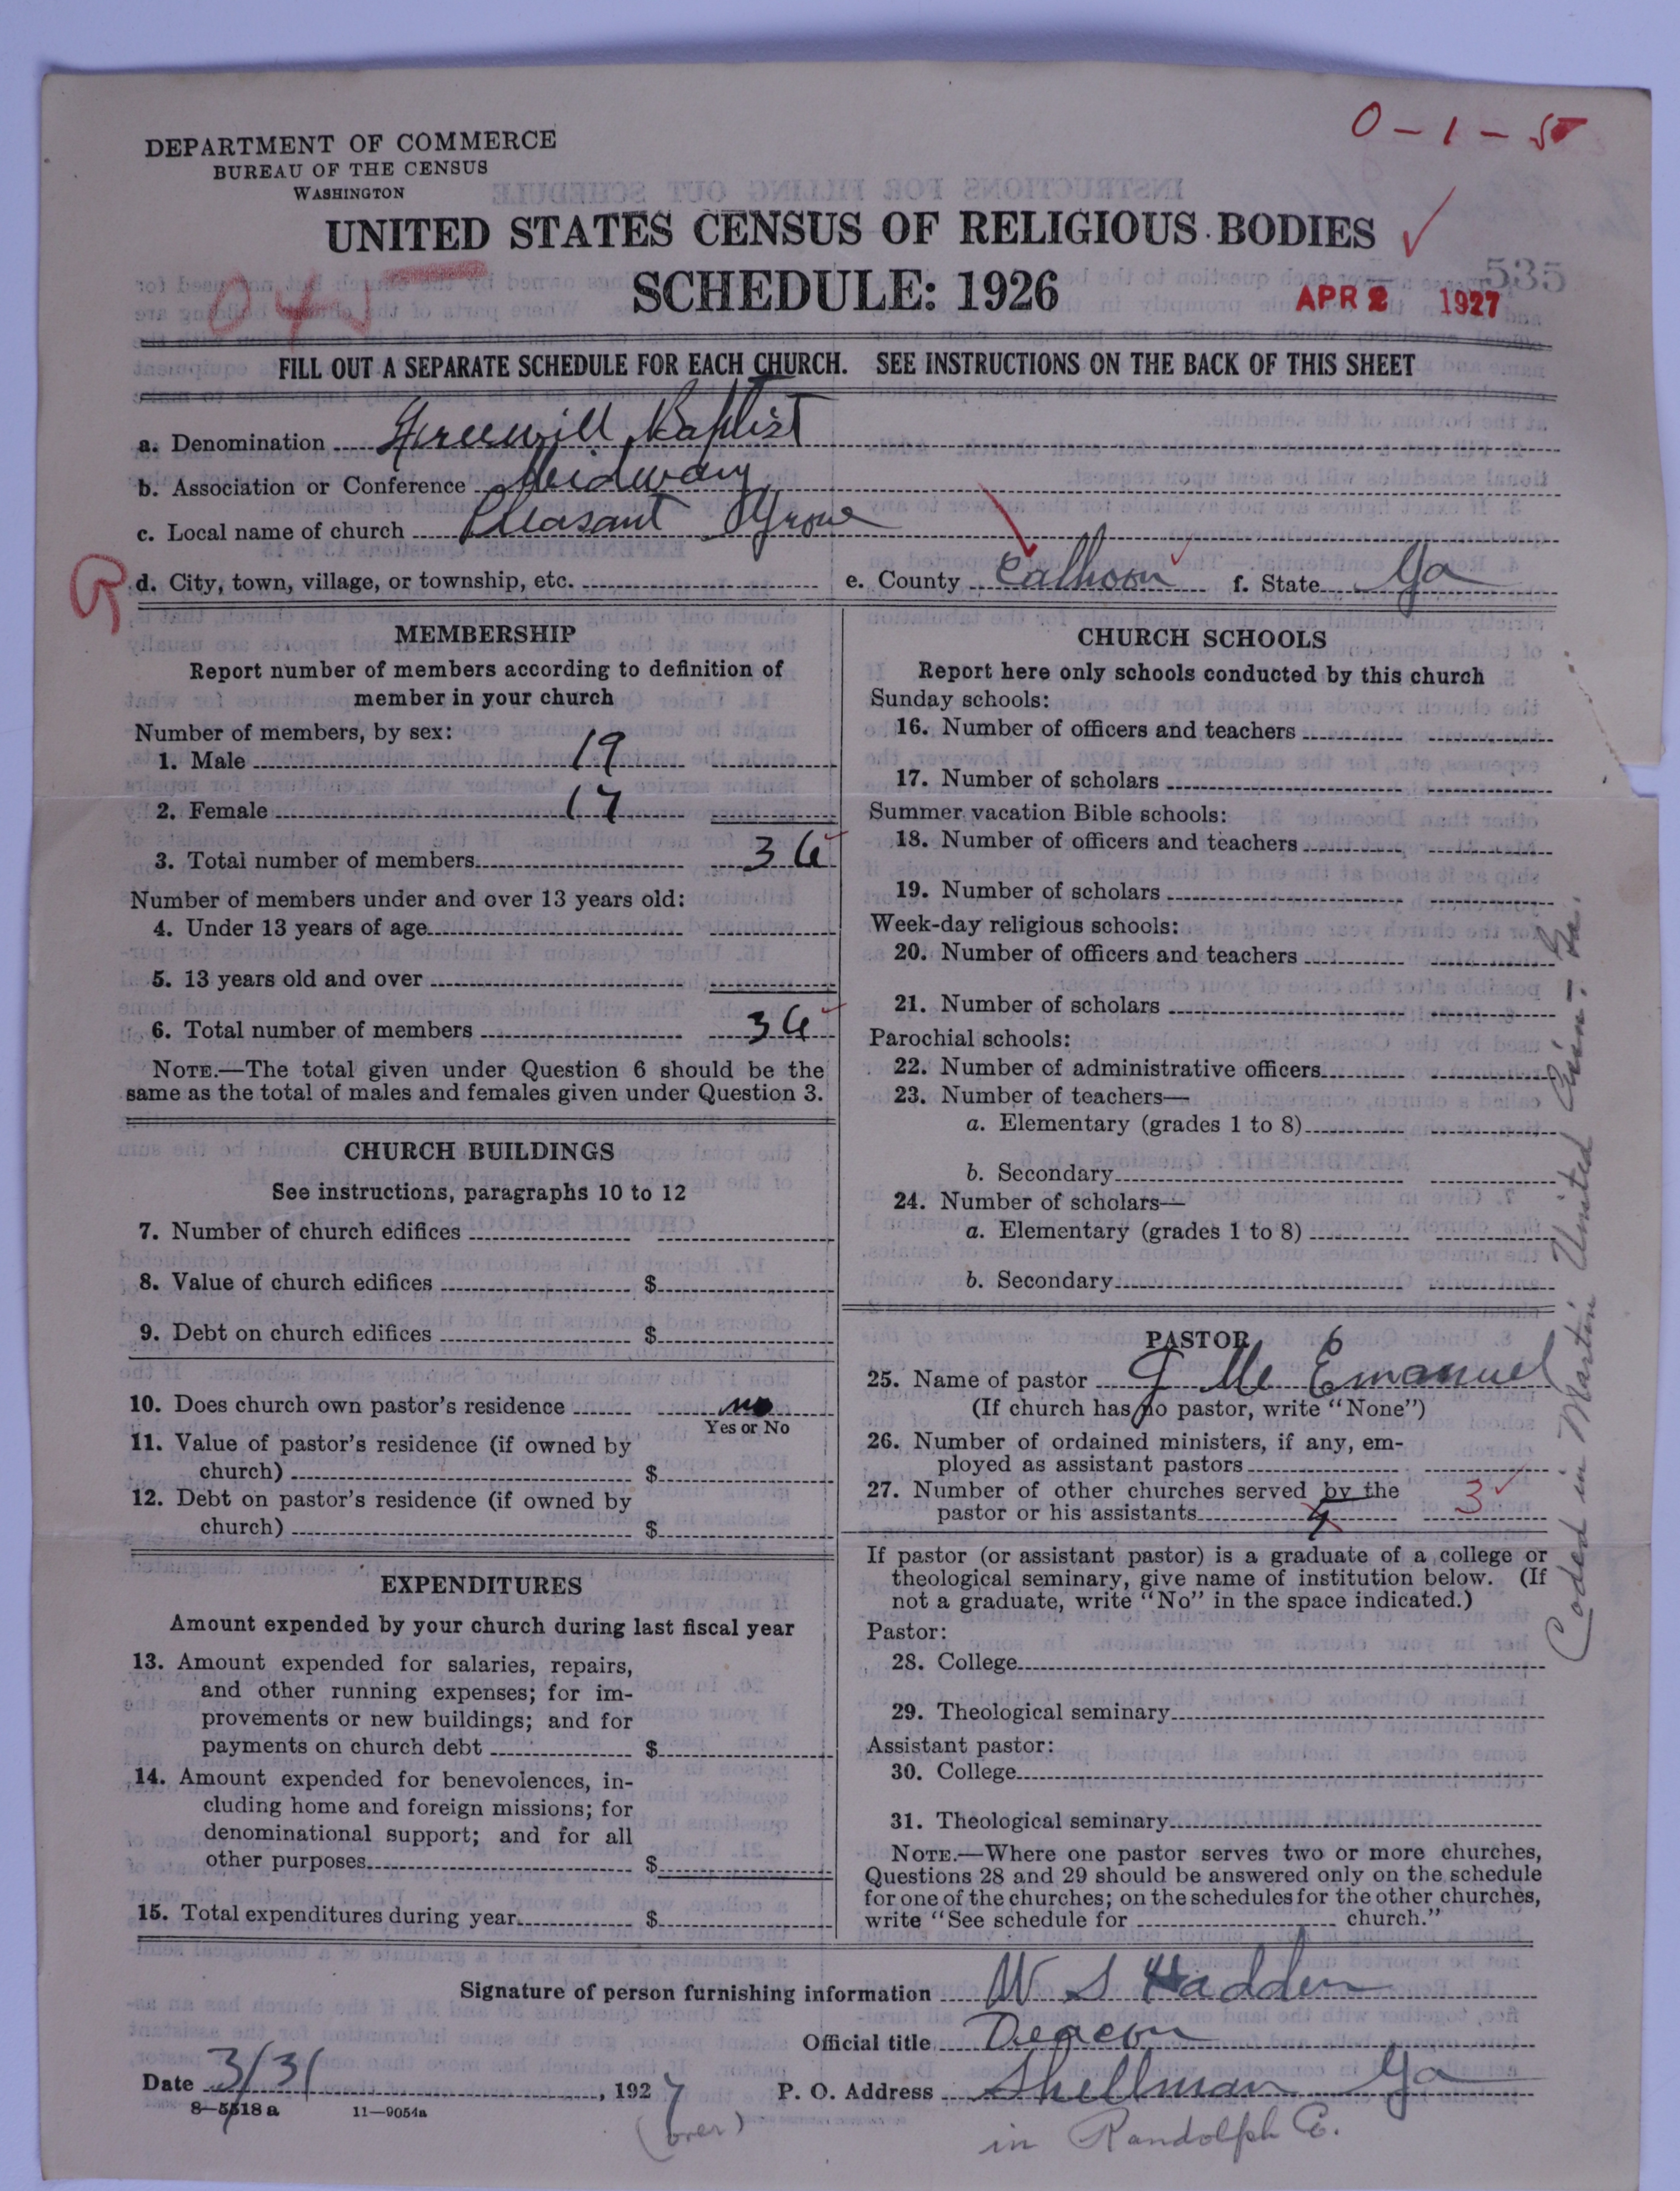 0-1-5
DEPARTMENT OF COMMERCE
BUREAU OF THE CENSUS
WASHINGTON
UNITED STATES CENSUS OF RELIGIOUS BODIES
SCHEDULE: 1926
535
APR 2 1927
FILL OUT A SEPARATE SCHEDULE FOR EACH CHURCH. SEE INSTRUCTIONS ON THE BACK OF THIS SHEET
a. Denomination Freewill Baptist
b. Association or Conference Midway
c. Local name of church Pleasant Grove
d. City, town, village, or township, etc. e. County Calhoon f. State Ga
MEMBERSHIP
Report number of members according to definition of
member in your church
Number of members, by sex:
1. Male 19
2. Female 17
3. Total number of members 36
Number of members under and over 13 years old:
4. Under 13 years of age
5. 13 years old and over
6. Total number of members 36
NOTE.—The total given under Question 6 should be the
same as the total of males and females given under Question 3.
CHURCH BUILDINGS
See instructions, paragraphs 10 to 12
7. Number of church edifices
8. Value of church edifices $
9. Debt on church edifices $
10. Does church own pastor's residence no
Yes or No
11. Value of pastor's residence (if owned by
church) $
12. Debt on pastor's residence (if owned by
church) $
EXPENDITURES
Amount expended by your church during last fiscal year
13. Amount expended for salaries, repairs,
and other running expenses; for im-
provements or new buildings; and for
payments on church debt $
14. Amount expended for benevolences, in-
cluding home and foreign missions; for
denominational support; and for all
other purposes $
15. Total expenditures during year $
CHURCH SCHOOLS
Report here only schools conducted by this church
Sunday schools:
16. Number of officers and teachers
17. Number of scholars
Summer vacation Bible schools:
18. Number of officers and teachers
19. Number of scholars
Week-day religious schools:
20. Number of officers and teachers
21. Number of scholars
Parochial schools:
22. Number of administrative officers
23. Number of teachers—
a. Elementary (grades 1 to 8)
b. Secondary
24. Number of scholars—
a. Elementary (grades 1 to 8)
b. Secondary
PASTOR
25. Name of pastor J M Emanuel
(If church has no pastor, write "None")
26. Number of ordained ministers, if any, em-
ployed as assistant pastors
27. Number of other churches served by the
pastor or his assistants 4 3
If pastor (or assistant pastor) is a graduate of a college or
theological seminary, give name of institution below. (If
not a graduate, write "No" in the space indicated.)
Pastor:
28. College
29. Theological seminary
Assistant pastor:
30. College
31. Theological seminary
NOTE.—Where one pastor serves two or more churches,
Questions 28 and 29 should be answered only on the schedule
for one of the churches; on the schedules for the other churches,
write "See schedule for church."
Coded in Martin United Ga.
Signature of person furnishing information W S Hadden
Official title Deacon
Date 3/31, 1927 P. O. Address Shellman Ga
8—5518a 11—9054a
(over) in Randolph Co.